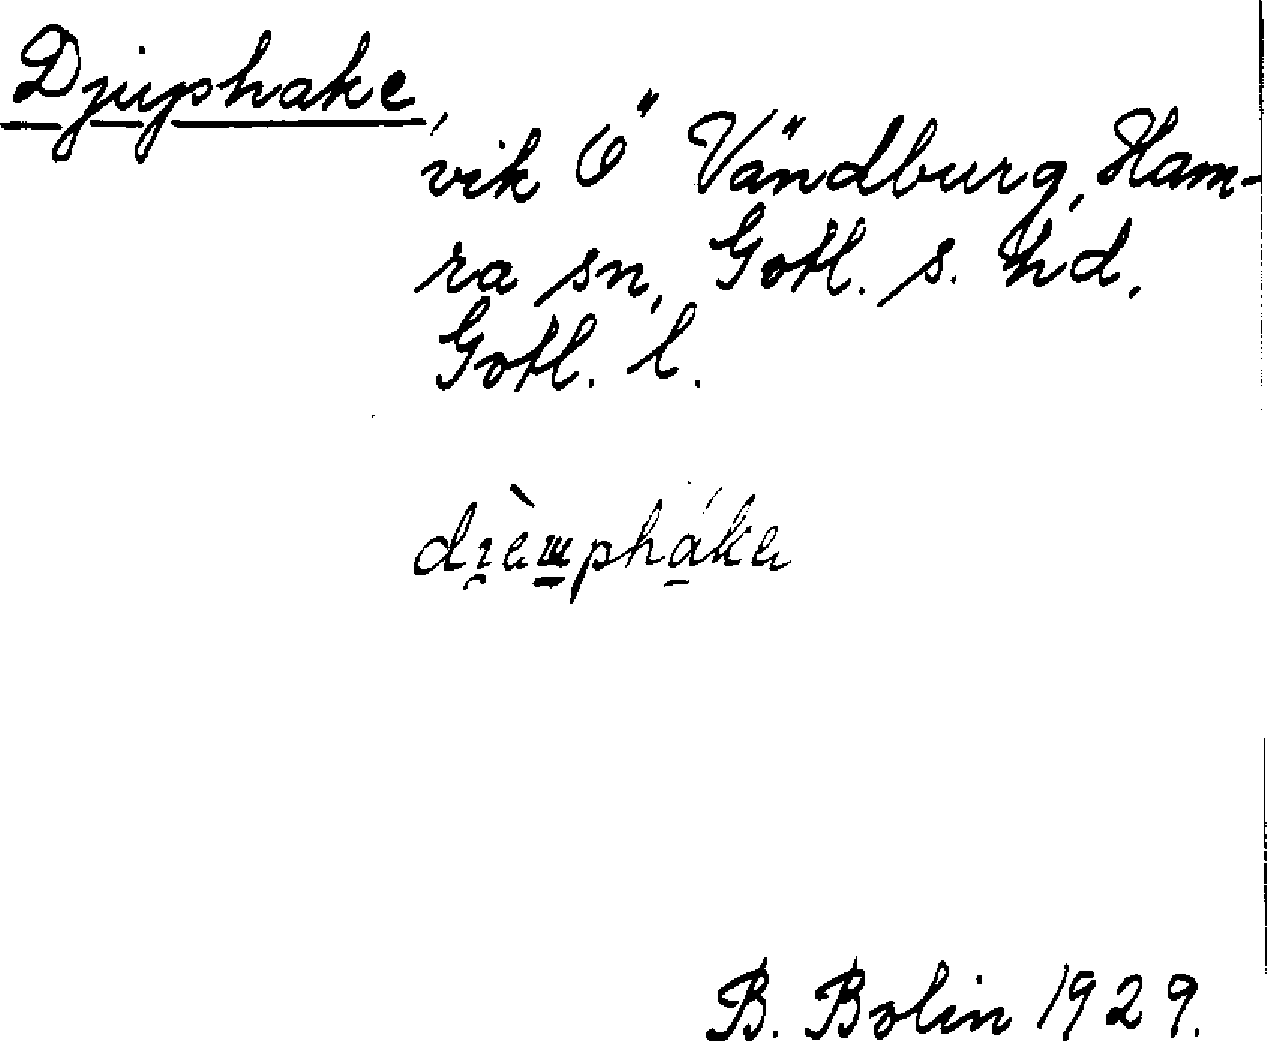 Djuphake,
vik Ö" Vändburg, Ham-
ra sn, Gotl. s. hd,
Gotl. l.
B. Bolin 1929.